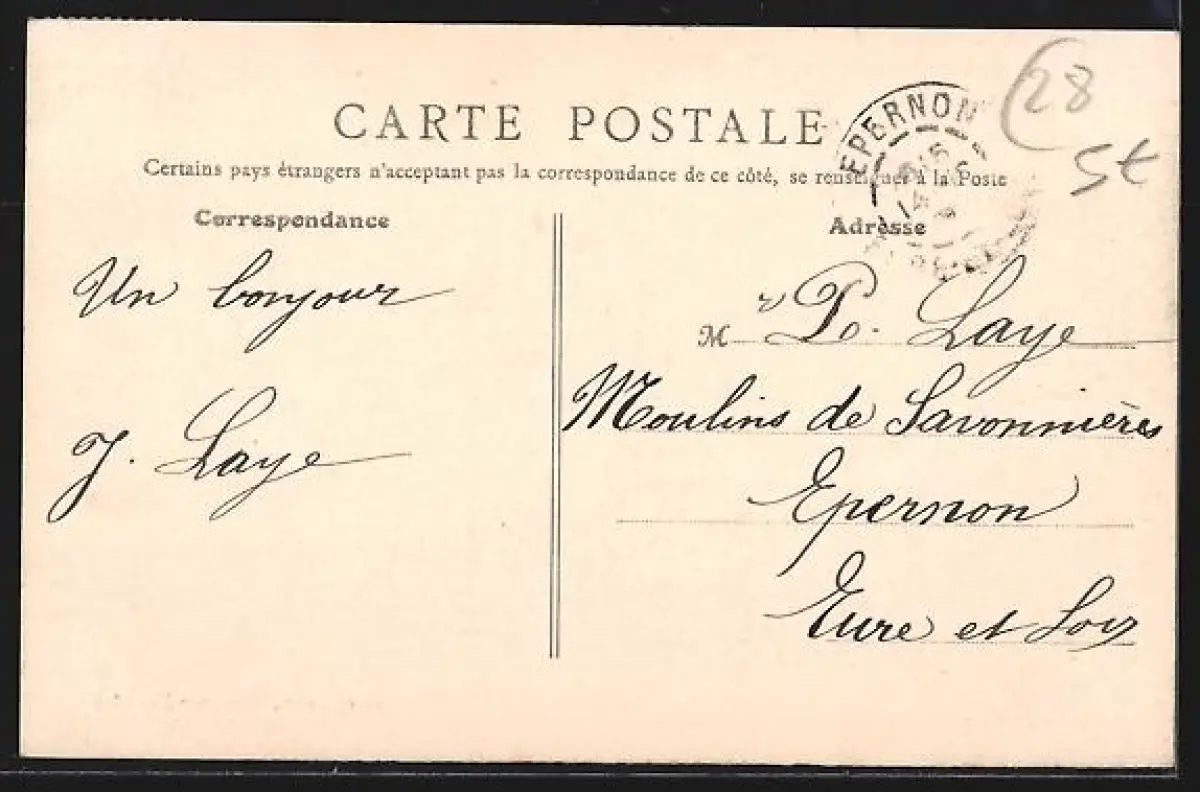 CARTE POSTALE
Certains pays étrangers n'acceptant pas la correspondance de ce côté, se renseigner à la Poste
Correspondance
Un bonjour
J. Laye
EPERNON
28
St
Adresse
M r P. Laye
Moulins de Savonnières
Epernon
Eure et Loir